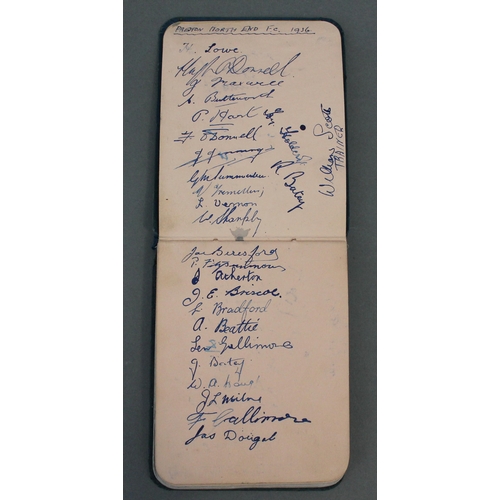 PRESTON NORTH END F.C. 1936.
H. Lowe
Hugh O'Donnell
J Maxwell
A. Butterworth
P. Hart
F O'Donnell
Wm. Scott
TRAINER
Holdcroft
R Batey
G M Summerlee
J Tremelling
L Vernon
W Shankly
Jos Beresford
P. Fitzsimmons
J Atherton
J. E. Briscoe.
L Bradford
A. Beattie
Len Gallimore
J. Batey
W. A.
J L Milne
F Gallimore
Jas Dougal